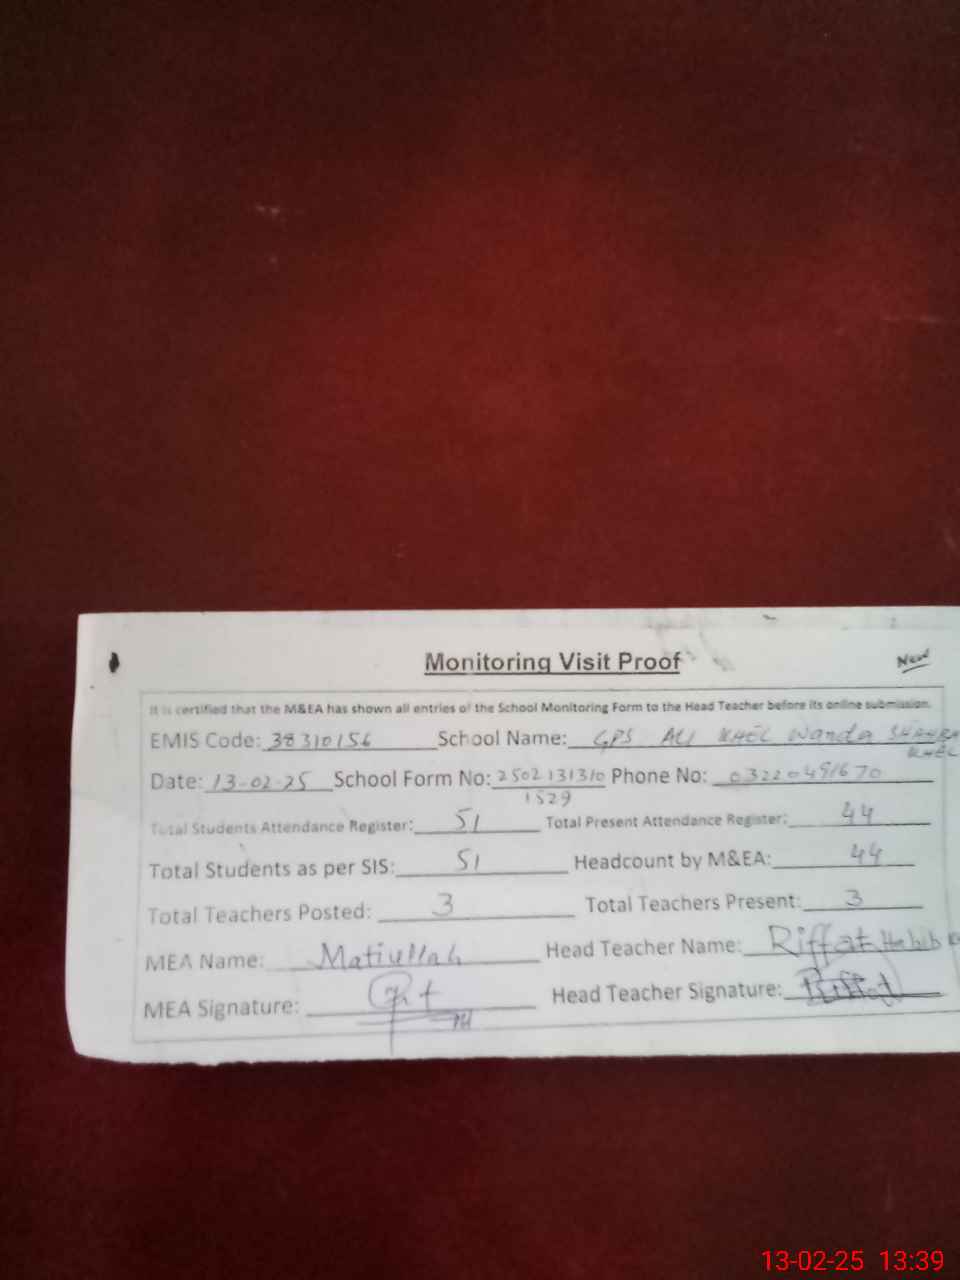 Monitoring Visit Proof
New
It is certified that the M&EA has shown all entries of the School Monitoring Form to the Head Teacher before its online submission.
EMIS Code: 38310156 School Name: GPS ALI KHEL Wanda
KHEL
Date: 13-02-25 School Form No: 2502131310 Phone No: 03220491670
1529
Total Students Attendance Register: 51 Total Present Attendance Register: 44
Total Students as per SIS: 51 Headcount by M&EA: 44
Total Teachers Posted: 3 Total Teachers Present: 3
MEA Name: Matiullah Head Teacher Name: Riffat Habib
MEA Signature: Head Teacher Signature: Riffat
13-02-25 13:39